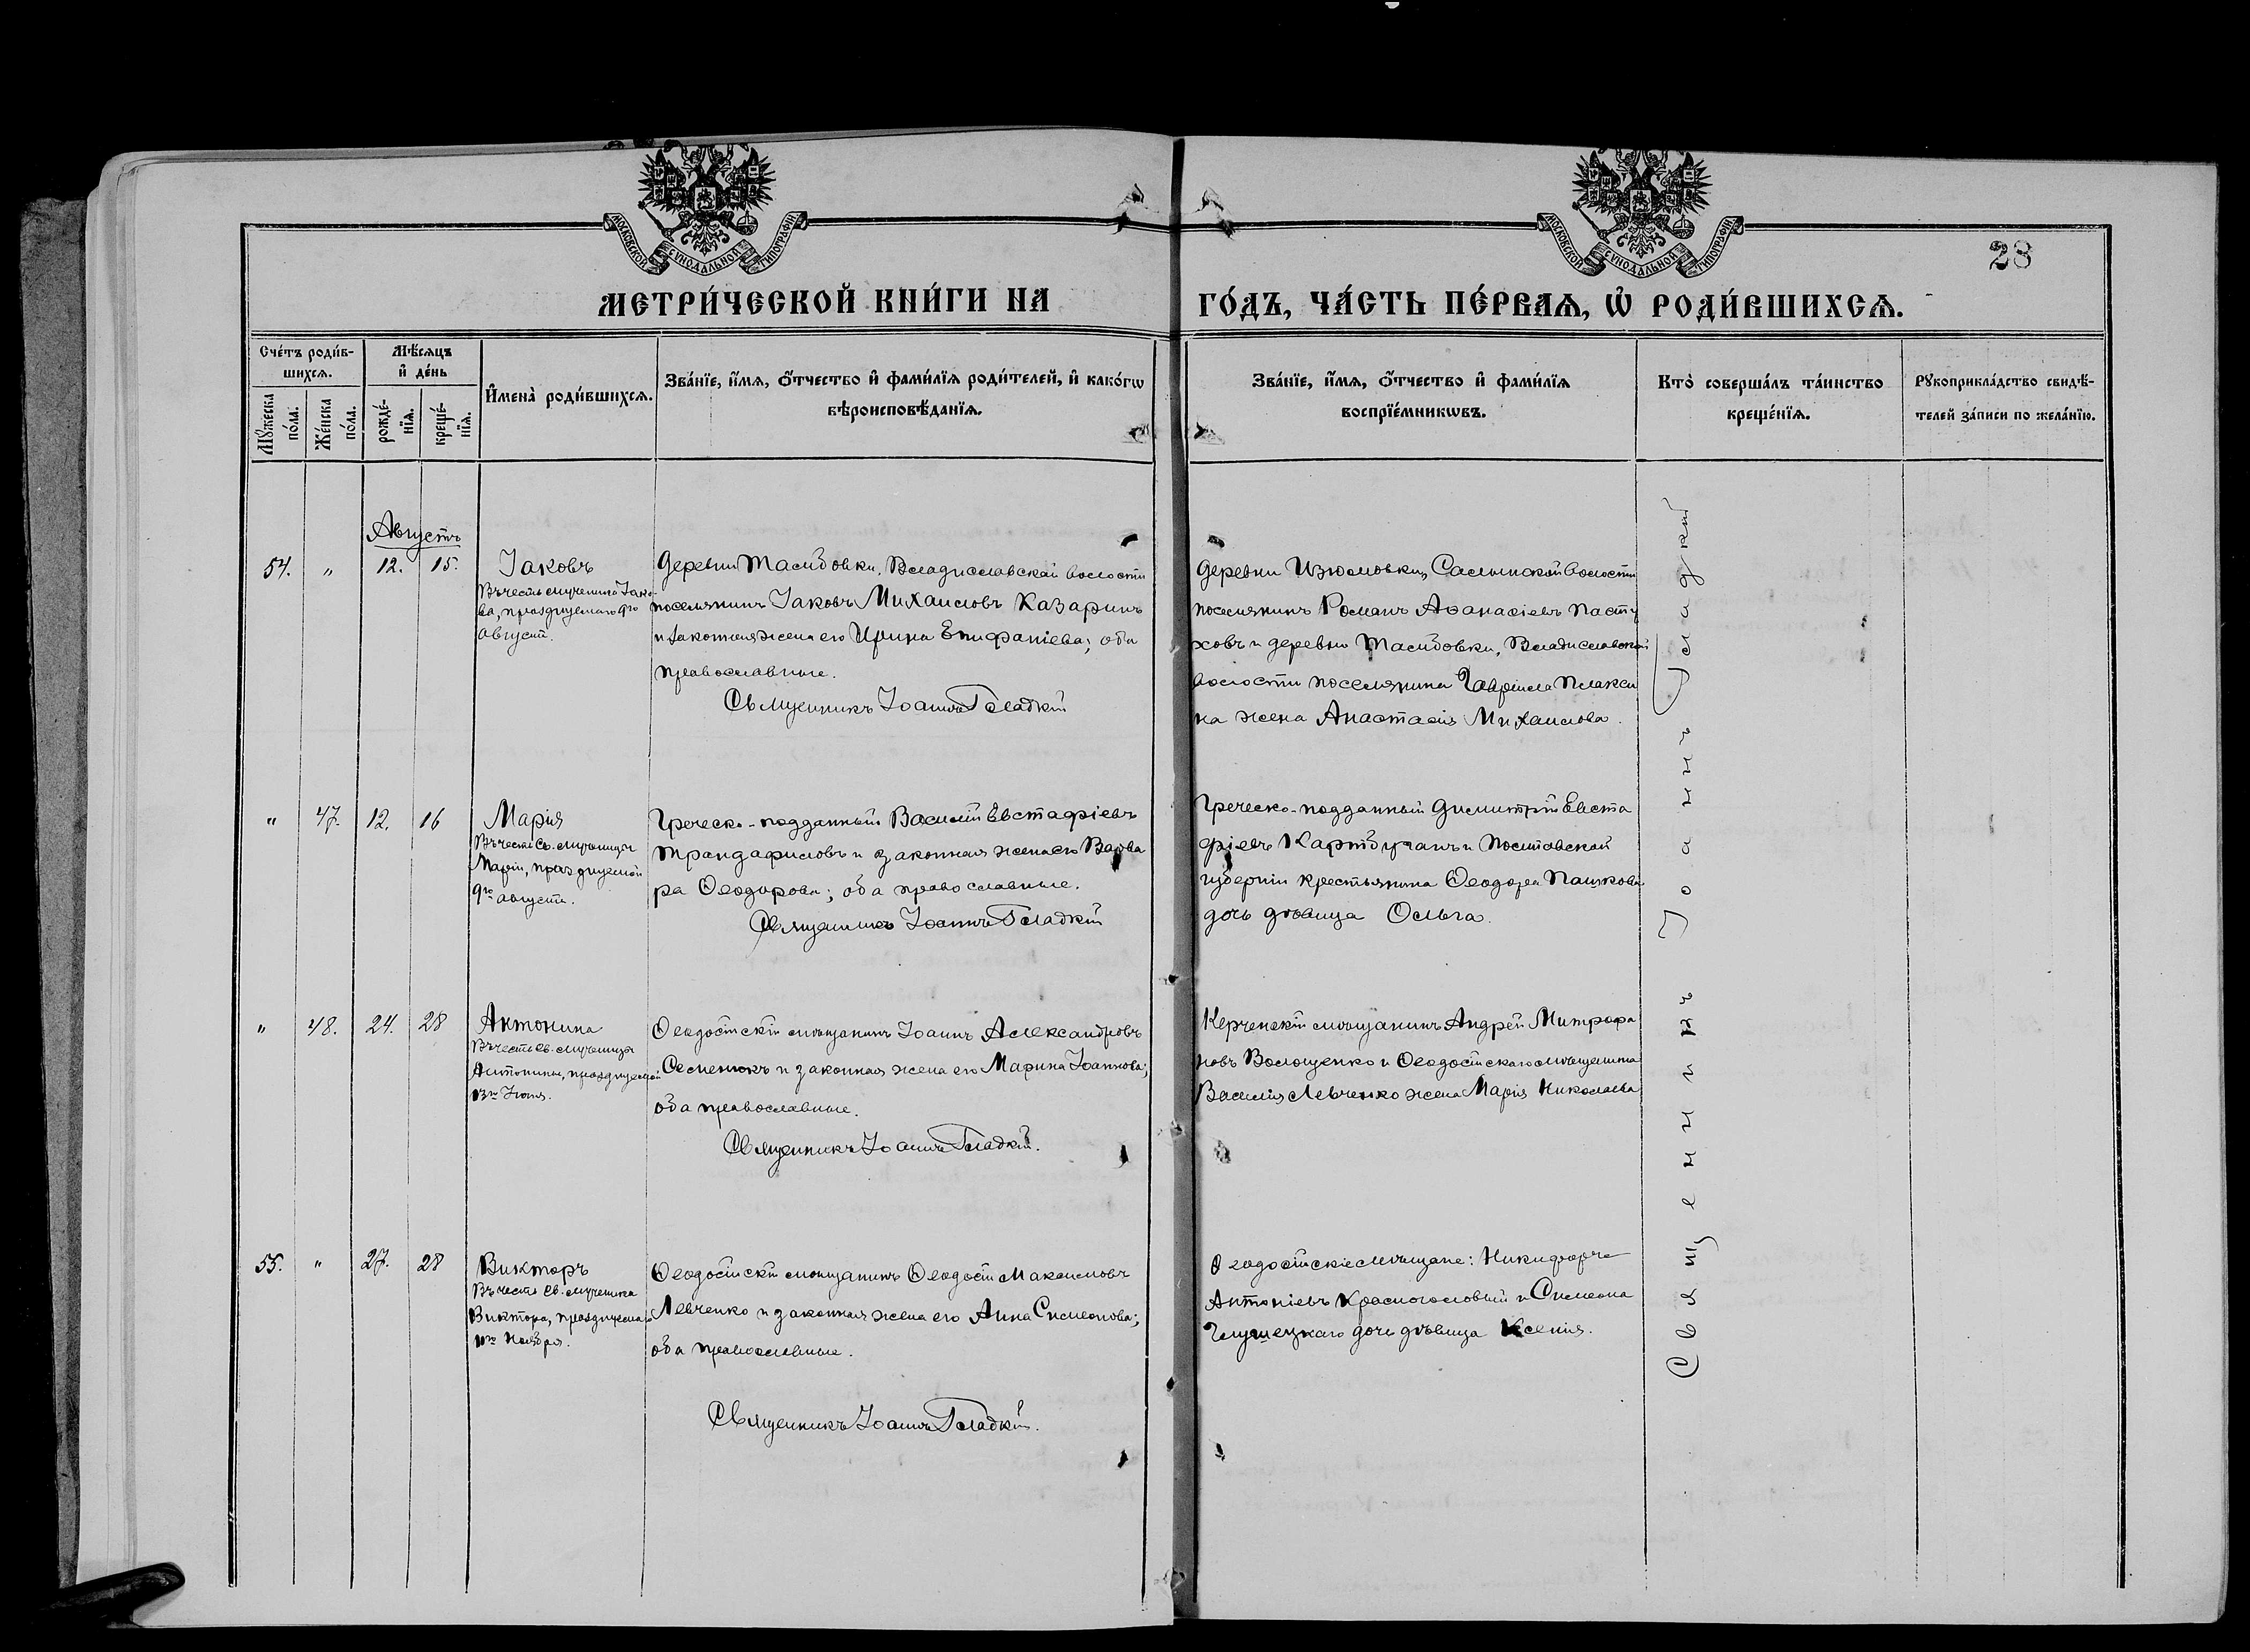 МОСКОВСКОЙ СѴНОДАЛЬНОЙ ТИПОГРАФІИ
МОСКОВСКОЙ СѴНОДАЛЬНОЙ ТИПОГРАФІИ
28
МЕТРИ́ЧЕСКОЙ КНИ́ГИ НА
ГО́ДЪ, ЧА́СТЬ ПЕ́РВАѦ, Ѡ҆ РОДИ́ВШИХСѦ.
Сче́тъ роди́в-
шихсѧ.
Мꙋ́жеска по́ла.
Же́нска по́ла.
Мѣ́сѧцъ
и҆ де́нь
рожде́-
нїѧ.
креще́-
нїѧ.
И҆мена̀ роди́вшихсѧ.
Зва́нїе, и҆́мѧ, ѻ҆́тчество и҆ фами́лїѧ роди́телей, и҆ како́гѡ
вѣроисповѣ́данїѧ.
Зва́нїе, и҆́мѧ, ѻ҆́тчество и҆ фами́лїѧ
воспрїе́мникѡвъ.
Кто̀ соверша́лъ та́инство
креще́нїѧ.
Рꙋкоприкла́дство свидѣ́-
телей за́писи по жела́нїю.
Августъ
54. " 12. 15.
Іаковъ
Въ честь мученика Іако-
ва, празднуемаго 9го
Август.
Деревни Владиславской волости
поселянинъ Іаковъ Михаиловъ Казаринъ
и законная жена его Ирина Епифаніева; оба
православные.
Священникъ Іоаннъ Гладкій
Деревни Изюмовки, Салынской волости
поселянинъ Романъ Аѳанасіевъ Пасту
ховъ и деревни Владиславской
волости поселянина Гавріила Плакси
на жена Анастасія Михаилова.
" 47. 12. 16
Марія
Въ честь Св. мученицы
Маріи, празднуемой
9го августа.
Греческо-подданный Василій Евстафіевъ
Трандафиловъ и законная жена его Варва
ра Ѳеодорова; оба православные.
Священникъ Іоаннъ Гладкій
Греческо-подданный Димитрій Евста
фіевъ и Полтавской
губерніи крестьянина Ѳеодора Пашкова
дочь дѣвица Ольга.
" 48. 24. 28
Антонина
Въ честь св. мученицы
Антонины, празднуемой
13го Іюня.
Ѳеодосійскій мѣщанинъ Іоаннъ Александровъ
Семенюкъ и законная жена его Марина Іоаннова;
оба православные.
Священникъ Іоаннъ Гладкій.
Керченскій мѣщанинъ Андрей Митрофа
новъ Волощенко и Ѳеодосійскаго мѣщанина
Василія Левченко жена Марія Николаева
55. " 27. 28
Викторъ
Въ честь св. мученика
Виктора, празднуемаго
11го Ноября.
Ѳеодосійскій мѣщанинъ Ѳеодосій Максимовъ
Левченко и законная жена его Анна Симеонова;
оба православные.
Священникъ Іоаннъ Гладкій.
Ѳеодосійскіе мѣщане: Никифоръ
Антоніевъ Красноголовый и Симеона
дочь дѣвица Ксенія.
Священникъ Іоаннъ Гладкій